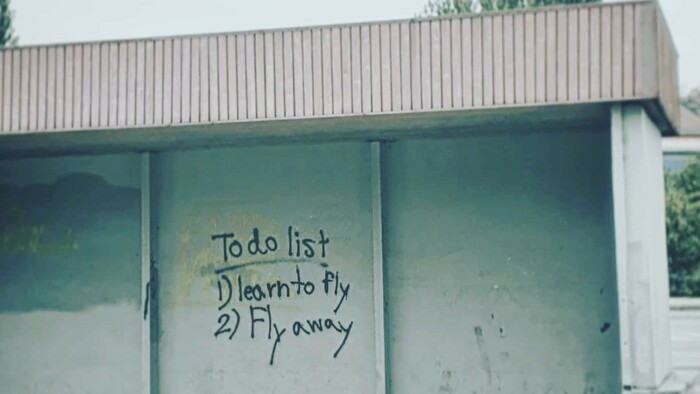 To do list
1) learn to fly
2) Fly away